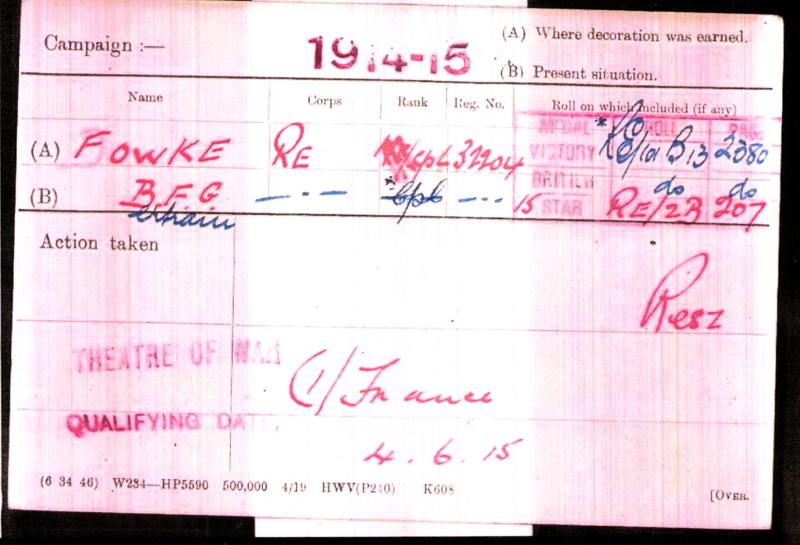 Campaign :— 1914-15 (A) Where decoration was earned.
(B) Present situation.
Name Corps Rank Reg. No. Roll on which included (if any)
MEDAL ROLL PAGE
(A) FOWKE RE Cpl 31204 VICTORY RE/101 B13 2380
BRITISH do do
(B) B.F.G — · — Cpl — · · 15 STAR RE/2B 207
Action taken
Res Z
THEATRE OF WAR (1) France
QUALIFYING DATE. 4.6.15
(6 34 46) W234—HP5590 500,000 4/19 HWV(P240) K608 [OVER.